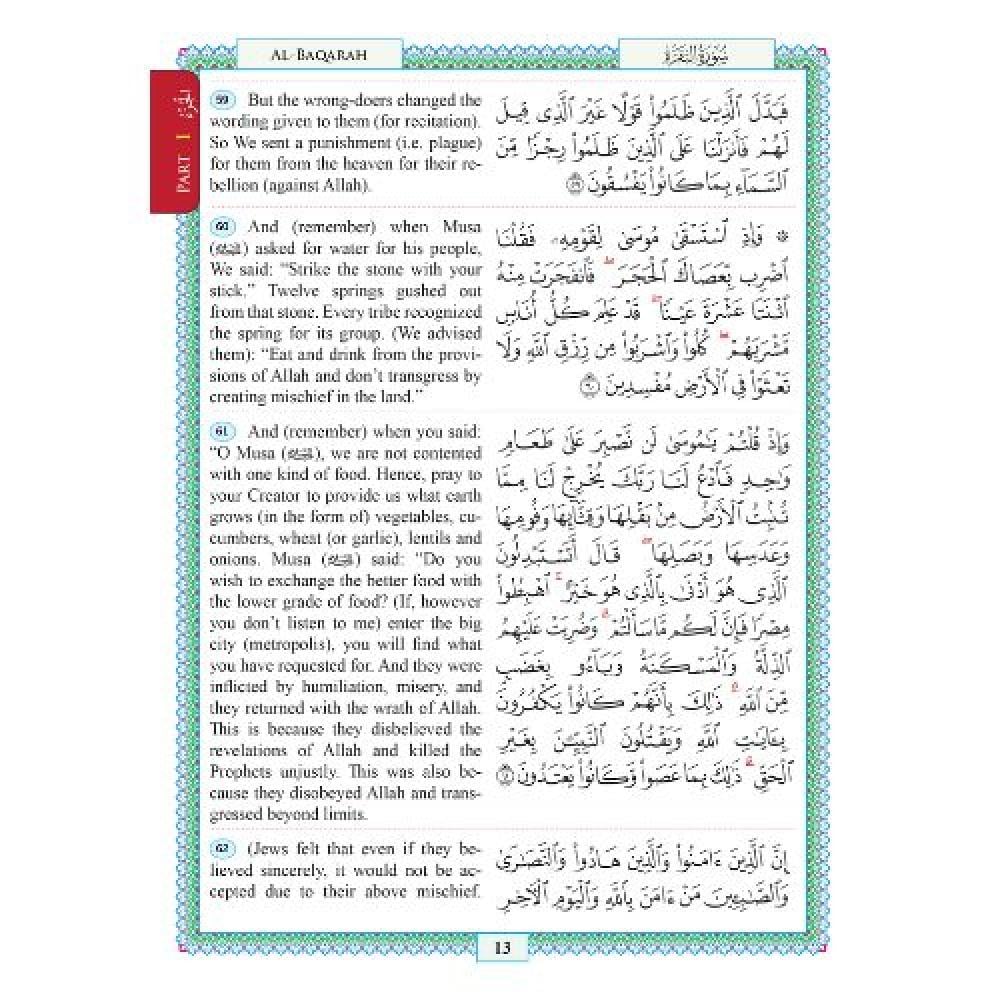 AL-BAQARAH
سُورَةُ البَقَرَة
PART 1 الجزء
59 But the wrong-doers changed the
wording given to them (for recitation).
So We sent a punishment (i.e. plague)
for them from the heaven for their re-
bellion (against Allah).
فَبَدَّلَ ٱلَّذِينَ ظَلَمُوا۟ قَوْلًا غَيْرَ ٱلَّذِى قِيلَ
لَهُمْ فَأَنزَلْنَا عَلَى ٱلَّذِينَ ظَلَمُوا۟ رِجْزًا مِّنَ
ٱلسَّمَآءِ بِمَا كَانُوا۟ يَفْسُقُونَ ٥٩
60 And (remember) when Musa
(عليه السلام) asked for water for his people,
We said: “Strike the stone with your
stick.” Twelve springs gushed out
from that stone. Every tribe recognized
the spring for its group. (We advised
them): “Eat and drink from the provi-
sions of Allah and don’t transgress by
creating mischief in the land.”
۞ وَإِذِ ٱسْتَسْقَىٰ مُوسَىٰ لِقَوْمِهِۦ فَقُلْنَا
ٱضْرِب بِّعَصَاكَ ٱلْحَجَرَ ۖ فَٱنفَجَرَتْ مِنْهُ
ٱثْنَتَا عَشْرَةَ عَيْنًا ۖ قَدْ عَلِمَ كُلُّ أُنَاسٍ
مَّشْرَبَهُمْ ۖ كُلُوا۟ وَٱشْرَبُوا۟ مِن رِّزْقِ ٱللَّهِ وَلَا
تَعْثَوْا۟ فِى ٱلْأَرْضِ مُفْسِدِينَ ٦٠
61 And (remember) when you said:
“O Musa (عليه السلام), we are not contented
with one kind of food. Hence, pray to
your Creator to provide us what earth
grows (in the form of) vegetables, cu-
cumbers, wheat (or garlic), lentils and
onions. Musa (عليه السلام) said: “Do you
wish to exchange the better food with
the lower grade of food? (If, however
you don’t listen to me) enter the big
city (metropolis), you will find what
you have requested for. And they were
inflicted by humiliation, misery, and
they returned with the wrath of Allah.
This is because they disbelieved the
revelations of Allah and killed the
Prophets unjustly. This was also be-
cause they disobeyed Allah and trans-
gressed beyond limits.
وَإِذْ قُلْتُمْ يَـٰمُوسَىٰ لَن نَّصْبِرَ عَلَىٰ طَعَامٍ
وَٰحِدٍ فَٱدْعُ لَنَا رَبَّكَ يُخْرِجْ لَنَا مِمَّا
تُنۢبِتُ ٱلْأَرْضُ مِنۢ بَقْلِهَا وَقِثَّآئِهَا وَفُومِهَا
وَعَدَسِهَا وَبَصَلِهَا ۖ قَالَ أَتَسْتَبْدِلُونَ
ٱلَّذِى هُوَ أَدْنَىٰ بِٱلَّذِى هُوَ خَيْرٌ ۚ ٱهْبِطُوا۟
مِصْرًا فَإِنَّ لَكُم مَّا سَأَلْتُمْ ۗ وَضُرِبَتْ عَلَيْهِمُ
ٱلذِّلَّةُ وَٱلْمَسْكَنَةُ وَبَآءُو بِغَضَبٍ
مِّنَ ٱللَّهِ ۗ ذَٰلِكَ بِأَنَّهُمْ كَانُوا۟ يَكْفُرُونَ
بِـَٔايَـٰتِ ٱللَّهِ وَيَقْتُلُونَ ٱلنَّبِيِّـۧنَ بِغَيْرِ
ٱلْحَقِّ ۗ ذَٰلِكَ بِمَا عَصَوا۟ وَّكَانُوا۟ يَعْتَدُونَ ٦١
62 (Jews felt that even if they be-
lieved sincerely, it would not be ac-
cepted due to their above mischief.
إِنَّ ٱلَّذِينَ ءَامَنُوا۟ وَٱلَّذِينَ هَادُوا۟ وَٱلنَّصَـٰرَىٰ
وَٱلصَّـٰبِـِٔينَ مَنْ ءَامَنَ بِٱللَّهِ وَٱلْيَوْمِ ٱلْـَٔاخِرِ
13